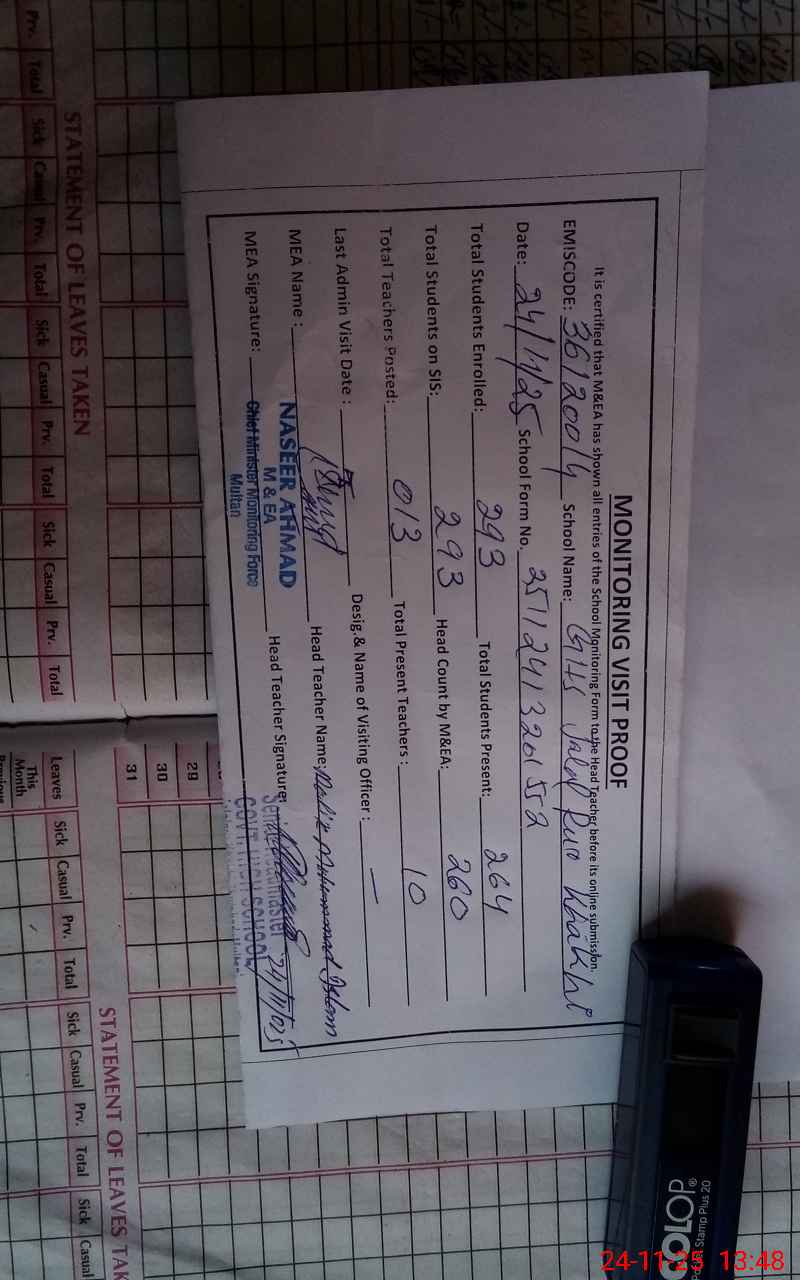 MONITORING VISIT PROOF
It is certified that M&EA has shown all entries of the School Monitoring Form to the Head Teacher before its online submission.
EMISCODE: 36120014 School Name: GHS Jalal Khakhi
Date: 24/11/25 School Form No. 25112413201552
Total Students Enrolled: 293 Total Students Present: 264
Total Students on SIS: 293 Head Count by M&EA: 260
Total Teachers Posted: 013 Total Present Teachers: 10
Last Admin Visit Date : Desig.& Name of Visiting Officer : —
MEA Name : NASEER AHMAD Head Teacher Name: Malik Muhammad Aslam
M & EA
MEA Signature: Chief Minister Monitoring Force Head Teacher Signature: 24/11/025
Multan
Senior Headmaster
GOVT. HIGH SCHOOL
STATEMENT OF LEAVES TAKEN
Prv. Total Sick Casual Prv. Total Sick Casual Prv. Total Sick Casual Prv. Total
29
30
31
Leaves Sick Casual Prv. Total Sick Casual Prv. Total Sick Casual
This Month
Previous
STATEMENT OF LEAVES TAK
COLOP
Stamp Plus 20
24-11-25 13:48